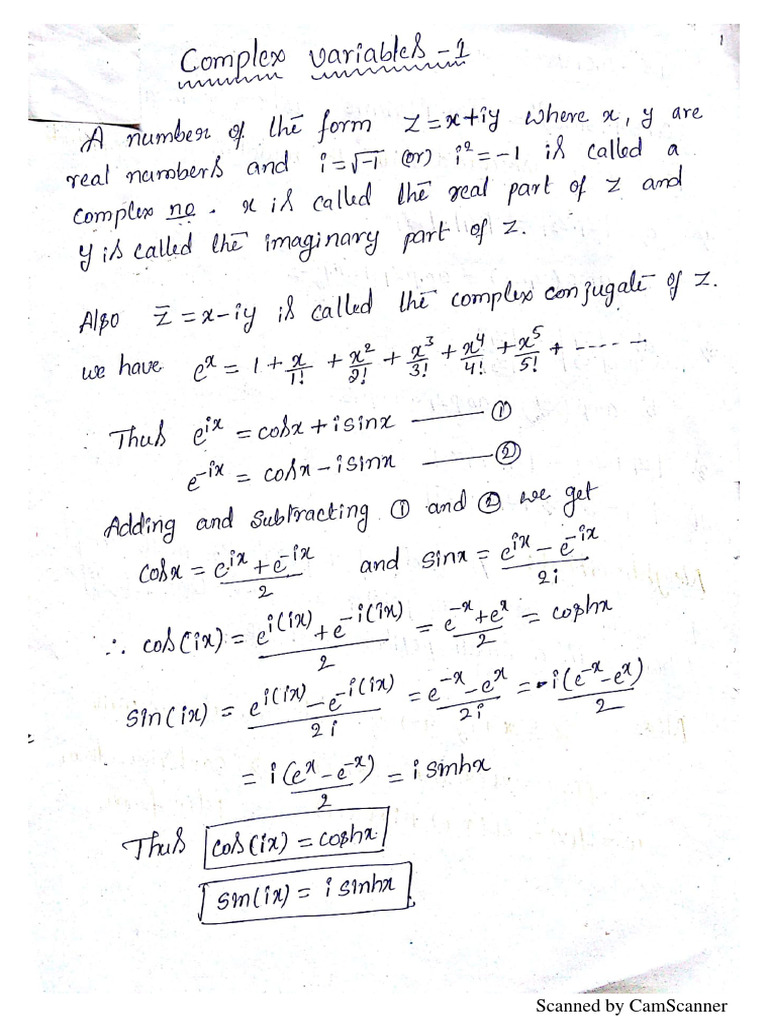 1
Complex variables - 1
A number of the form z = x+iy where x, y are
real numbers and i = √-1 (or) i² = -1 is called a
complex no. x is called the real part of z and
y is called the imaginary part of z.
Also z̄ = x-iy is called the complex conjugate of z.
we have e^x = 1 + x/1! + x²/2! + x³/3! + x⁴/4! + x⁵/5! + ------
Thus e^ix = cosx + i sinx —— ①
e^-ix = cosx - i sinx —— ②
Adding and subtracting ① and ② we get
cosx = (e^ix + e^-ix)/2 and sinx = (e^ix - e^-ix)/2i
∴ cos(ix) = (e^i(ix) + e^-i(ix))/2 = (e^-x + e^x)/2 = coshx
sin(ix) = (e^i(ix) - e^-i(ix))/2i = (e^-x - e^x)/2i = -i(e^-x - e^x)/2
= i(e^x - e^-x)/2 = i sinhx
Thus cos(ix) = coshx
sin(ix) = i sinhx
Scanned by CamScanner